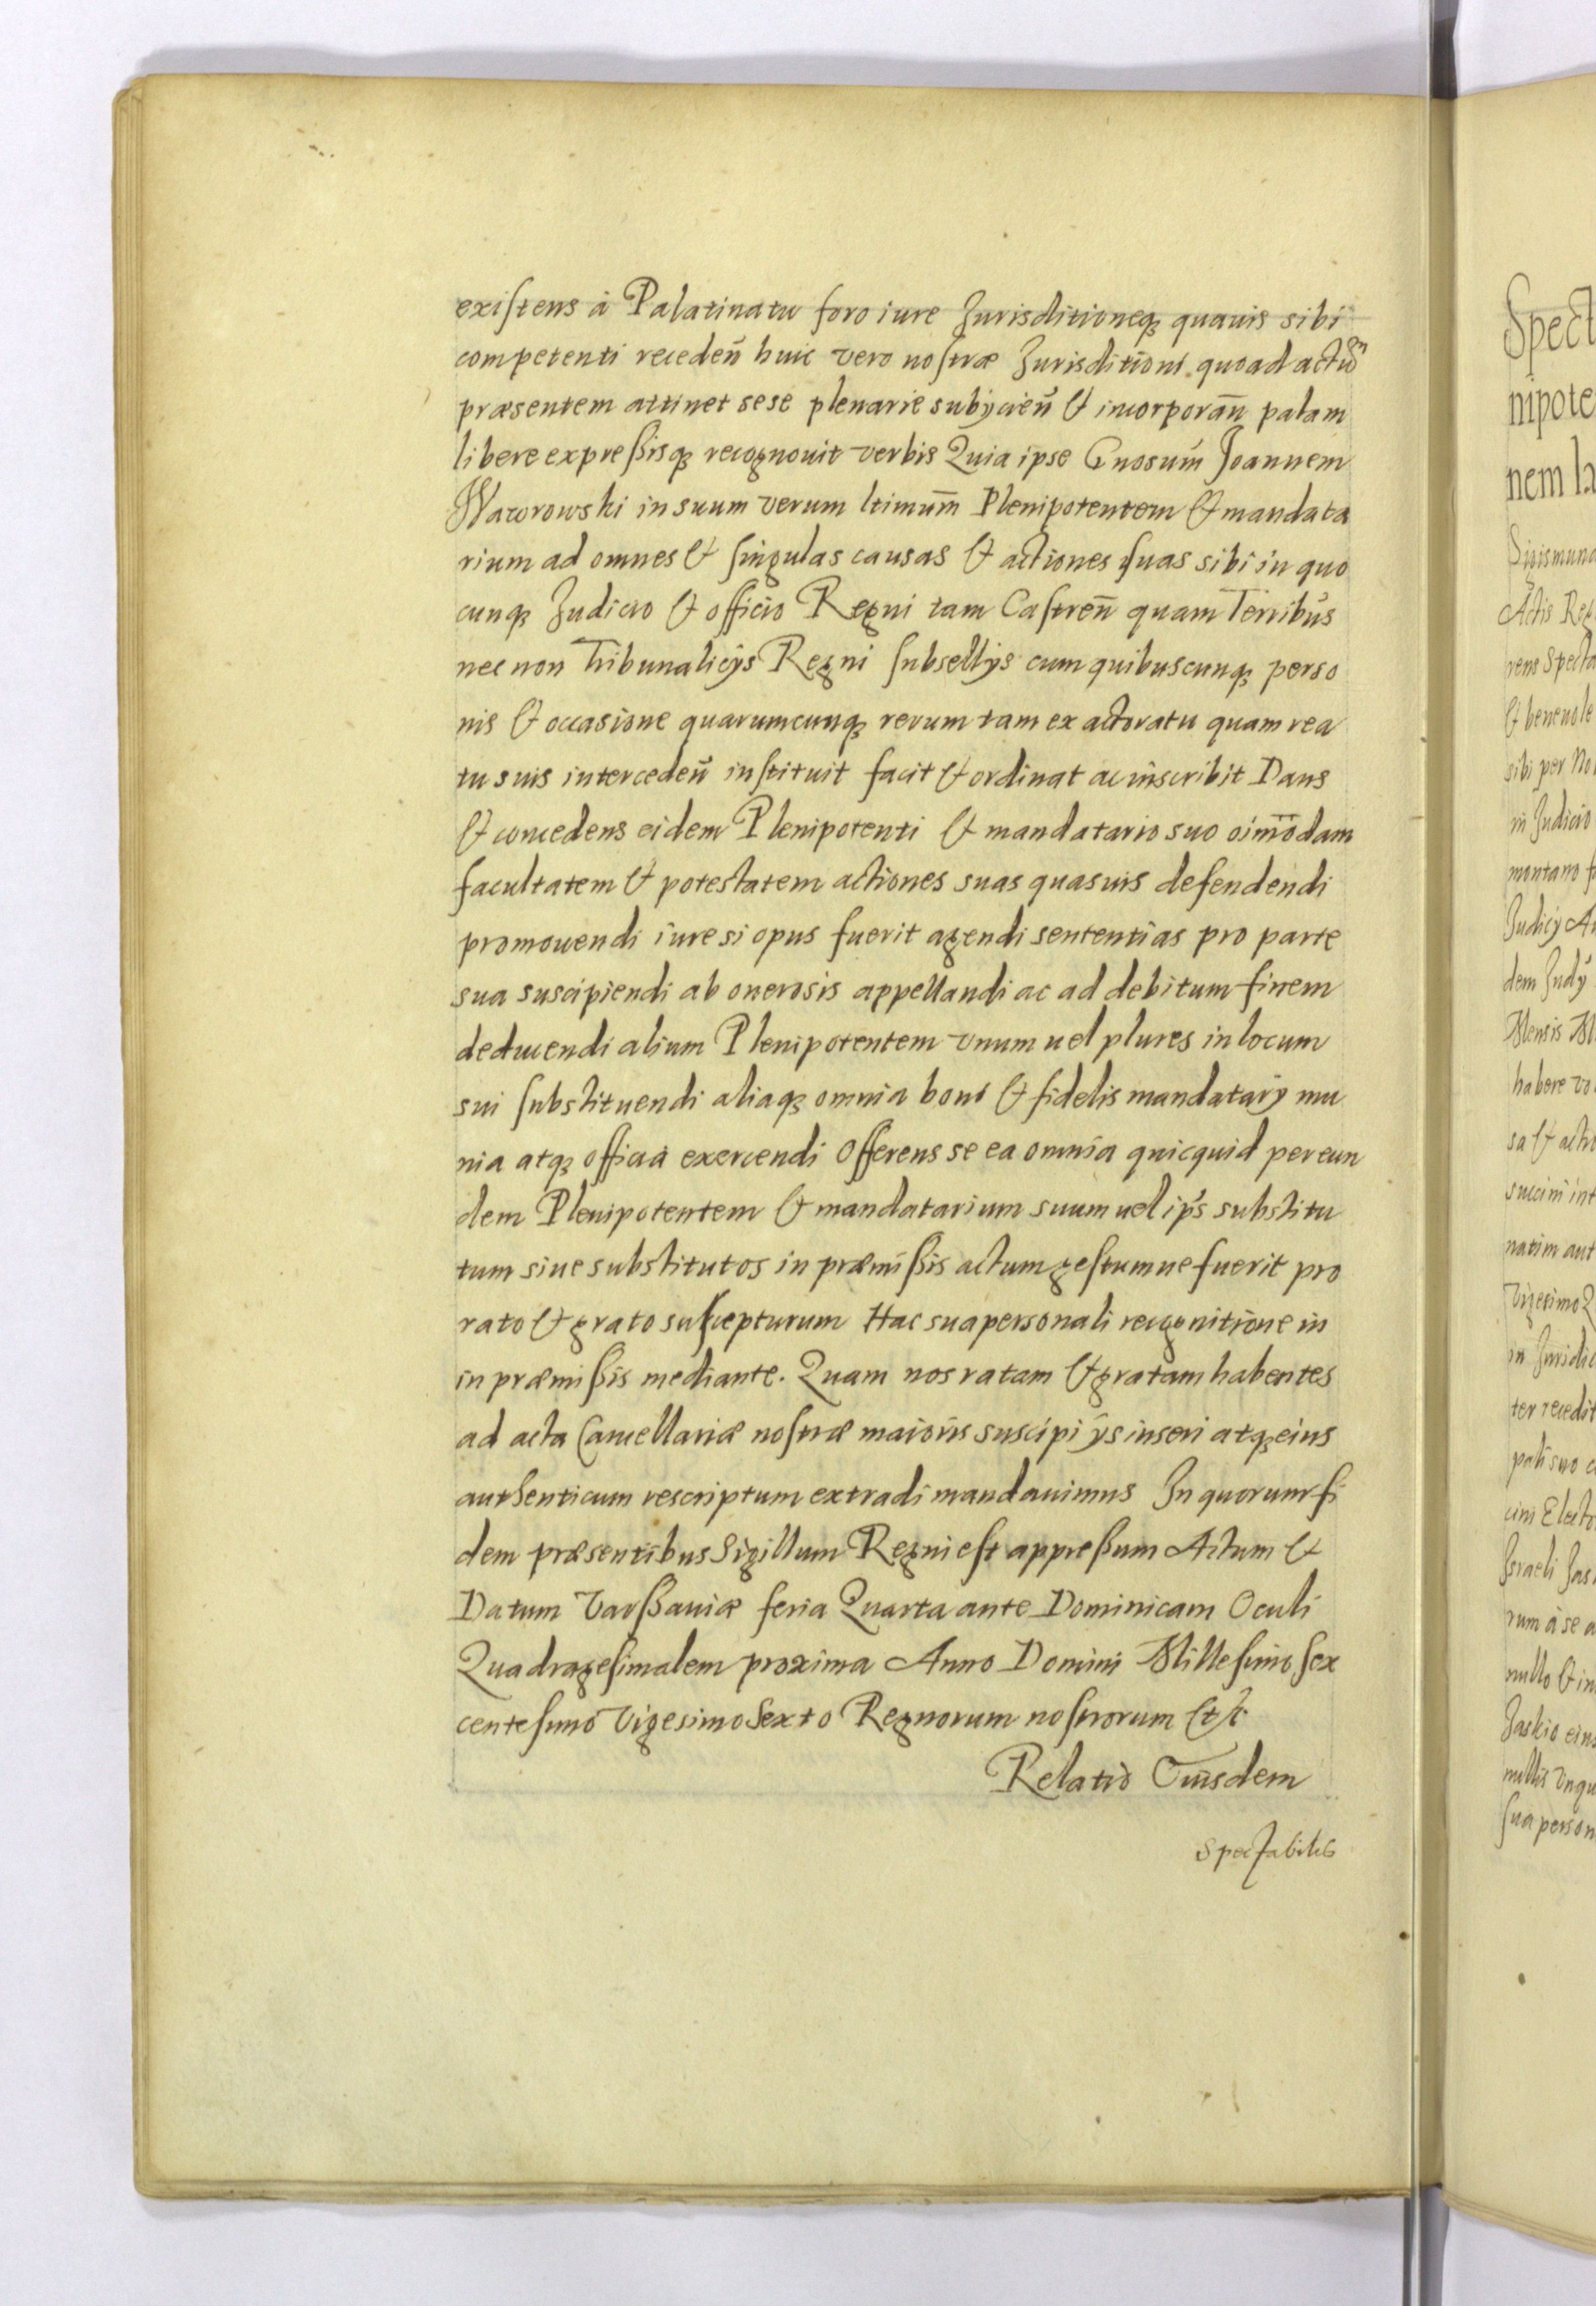 existens à Palatinatu foro iure Jurisditioneqꝫ quauis sibi
competenti recedeñ huic vero nostræ Jurisditioni quoad actum
præsentem attinet sese plenarie subijcieñ & incorporañ palam
libere expreßisqꝫ recognouit verbis Quia ipse Gnosum̃ Joannem
Wawrowski in suum verum ltimum̃ Plenipotentem & mandata
rium ad omnes & singulas causas & actiones suas sibi in quo
cunqꝫ Judicio & officio Regni tam Castreñ quam Terribus̃
nec non Tribunalicijs Regni subsellijs cum quibuscunqꝫ perso
nis & occasione quarumcunqꝫ rerum tam ex actoratu quam rea
tu suis intercedeñ instituit facit & ordinat ac inscribit Dans
& concedens eidem Plenipotenti & mandatario suo oim̃odam
facultatem & potestatem actiones suas quasuis defendendi
promouendi iure si opus fuerit agendi sententias pro parte
sua suscipiendi ab onerosis appellandi ac ad debitum finem
deducendi alium Plenipotentem vnum uel plures in locum
sui substituendi aliaqꝫ omnia boni & fidelis mandatarij mu
nia atqꝫ officia exercendi Offerens se ea omnia quicquid per eun
dem Plenipotentem & mandatarium suum uel ips̃ substitu
tum siue substitutos in præmißis actum gestumue fuerit pro
rato & grato suscepturum Hac sua personali recognitione in
in præmißis mediante. Quam nos ratam & gratam habentes
ad acta Cancellariæ nostræ maioris suscipi ijs inseri atqꝫ eius
authenticum rescriptum extradi mandauimus In quorum fi
dem præsentibus Sigillum Regni est appreßum Actum &
Datum Varßauiæ feria Quarta ante Dominicam Oculi
Quadragesimalem proxima Anno Domini Millesimo sex
centesimo Vigesimo Sexto Regnorum nostrorum &c
Relatio Eiusdem
Spectabilis
Spect
nipote
nem
Sigismund
Actis Reg
rens Specta
& beneuole
sibi per No
in Judicio
montano
Judicij
dem Judij
Mensis
habere
sa & actio
succini int
natim aut
Vigesimo
in Juridic
ter recedit
pali suo
cim Electo
Israeli Jas
rum à se
nullo & in
Jaskio eius
nullis vnqu
sua person